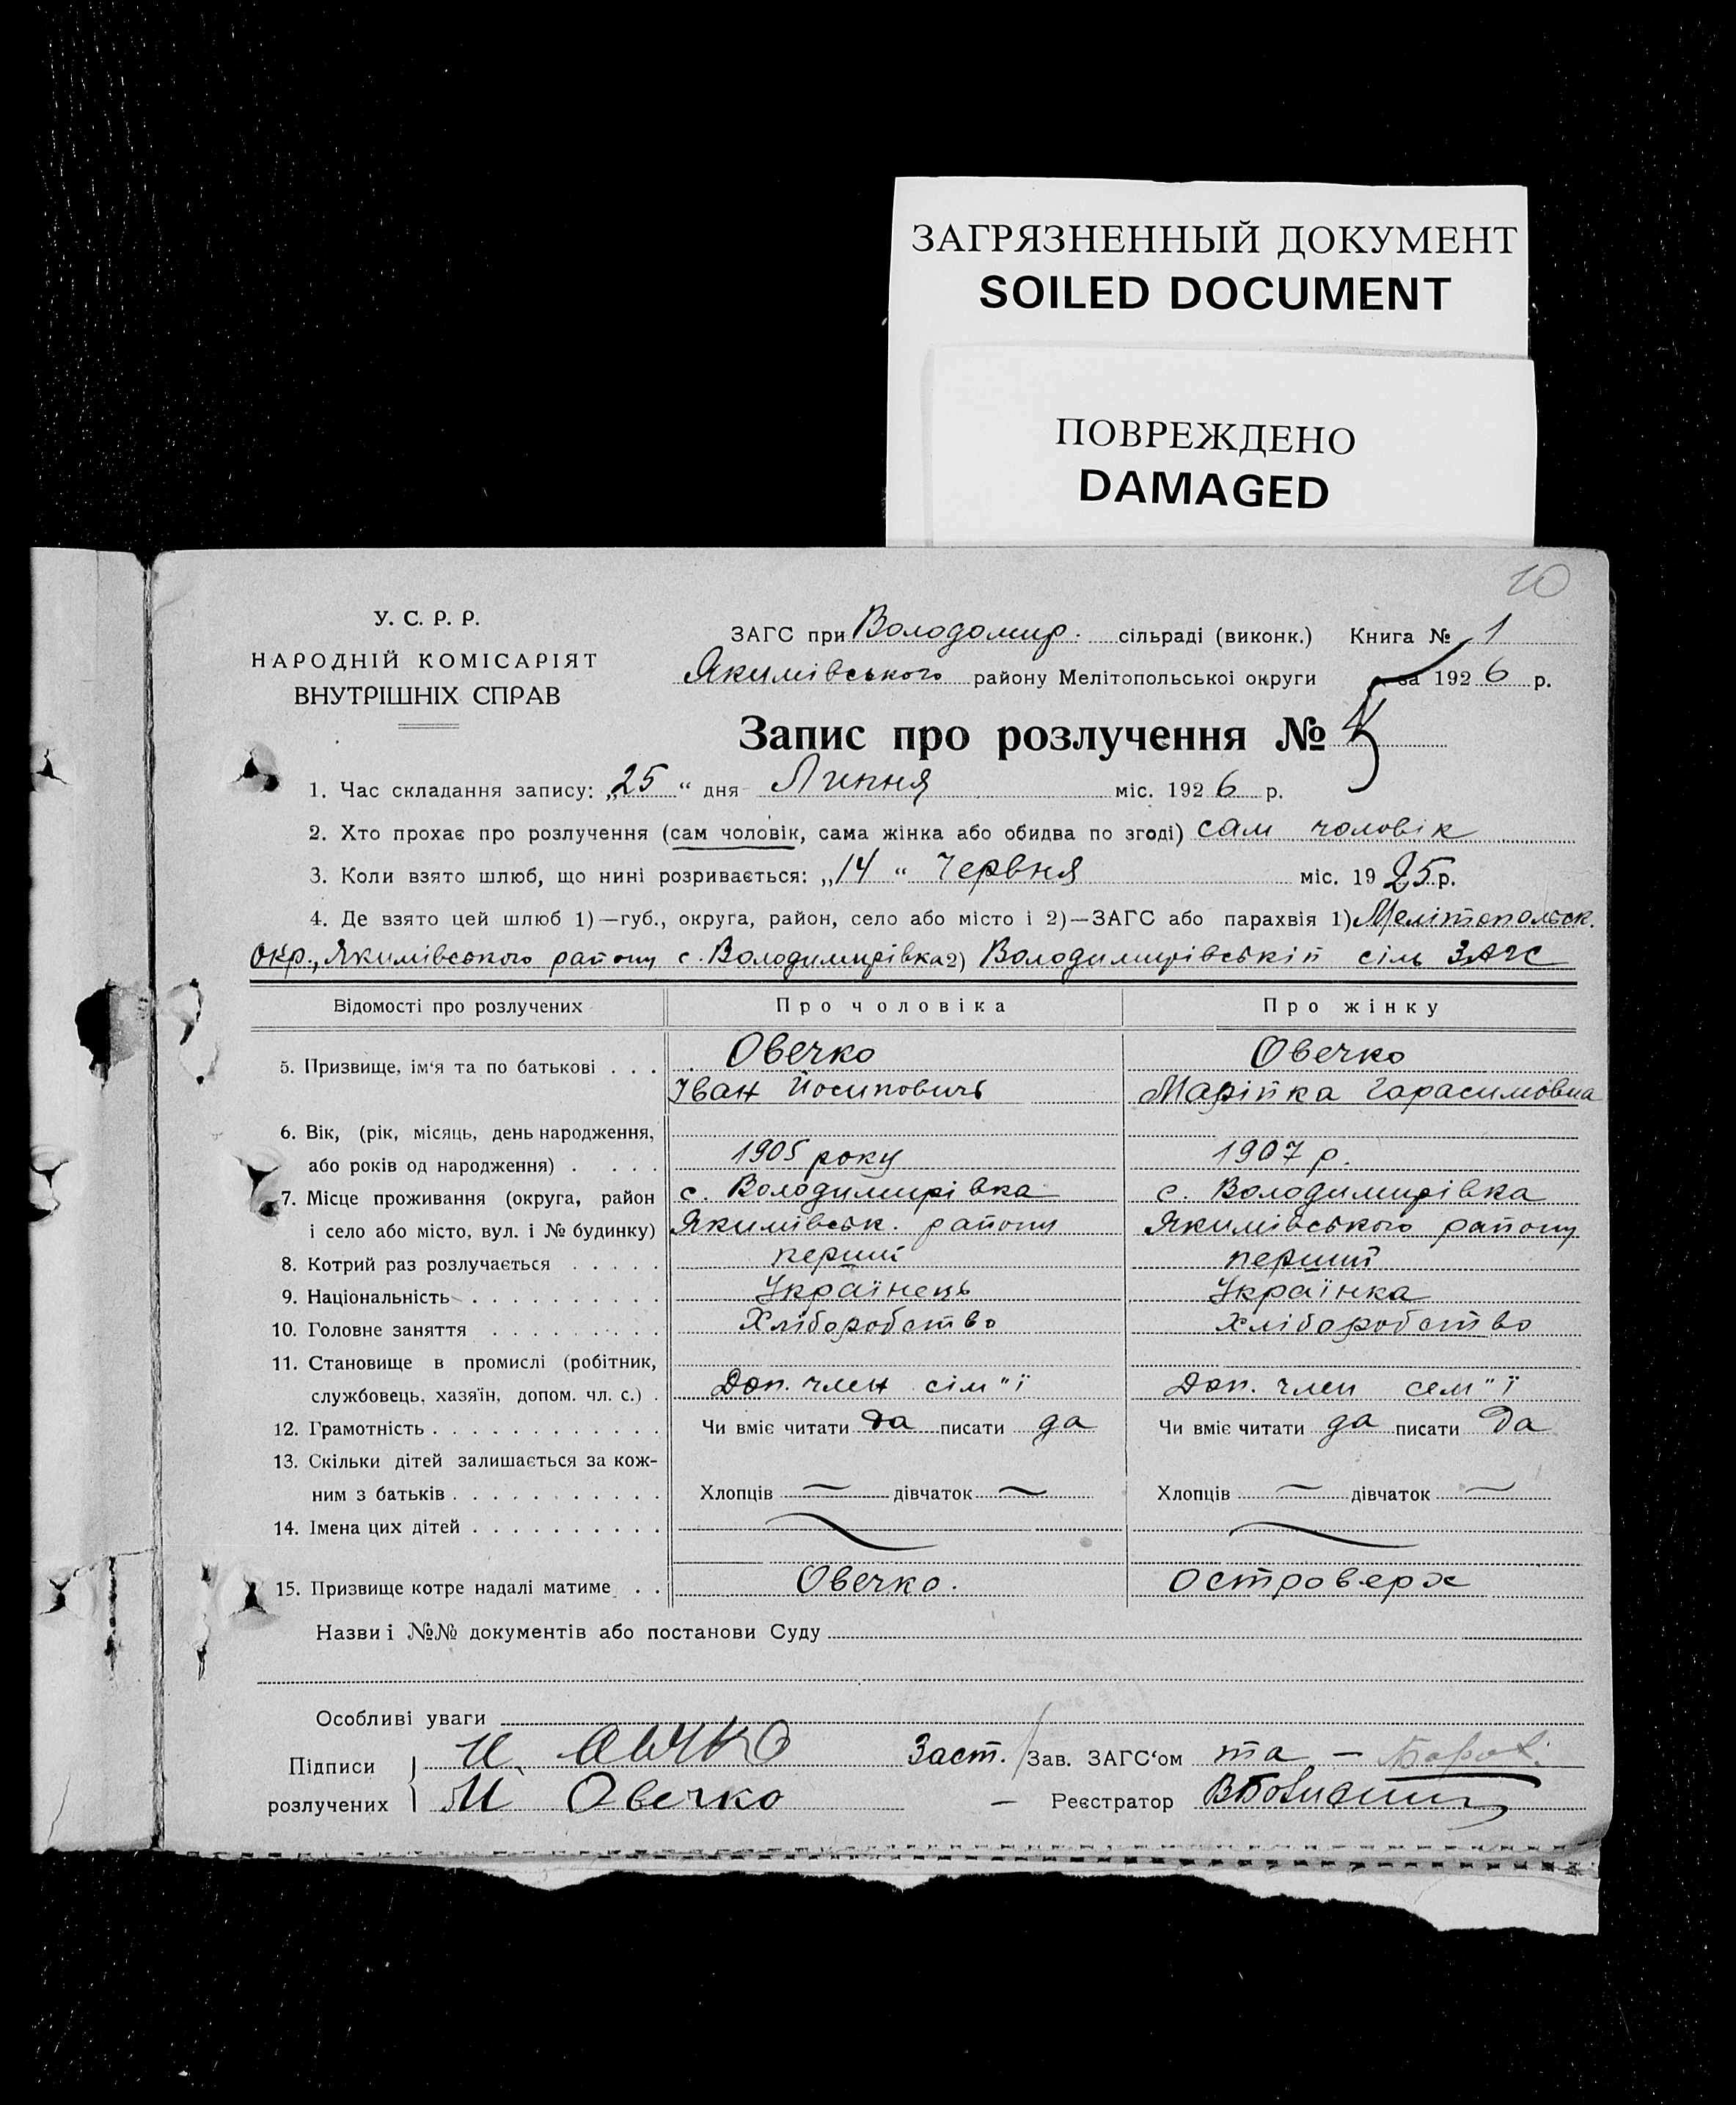 ЗАГРЯЗНЕННЫЙ ДОКУМЕНТ
SOILED DOCUMENT
ПОВРЕЖДЕНО
DAMAGED
10
У. С. Р. Р.
НАРОДНІЙ КОМІСАРІЯТ
ВНУТРІШНІХ СПРАВ
ЗАГС при Володомир. сільраді (виконк.) Книга № 1
Якимівського району Мелітопольської округи за 1926 р.
Запис про розлучення № 5
1. Час складання запису: „25“ дня Липня міс. 1926 р.
2. Хто прохає про розлучення (сам чоловік, сама жінка або обидва по згоді) сам чоловік
3. Коли взято шлюб, що нині розривається: „14“ Червня міс. 1925 р.
4. Де взято цей шлюб 1)—губ., округа, район, село або місто і 2)—ЗАГС або парахвія 1) Мелітопольск.
окр., Якимівського району с. Володимирівка 2) Володимирівській сіль ЗАГС
Відомості про розлучених Про чоловіка Про жінку
5. Призвище, ім'я та по батькові . . . Овечко Овечко
Іван Йосиповичь Марійка Гарасимовна
6. Вік, (рік, місяць, день народження,
або років од народження) . . . . 1905 року 1907 р.
7. Місце проживання (округа, район с. Володимирівка с. Володимирівка
і село або місто, вул. і № будинку) Якимівськ. району Якимівського району
8. Котрий раз розлучається . . . . . перший перший
9. Національність . . . . . . . . . . Українець Українка
10. Головне заняття . . . . . . . . . Хліборобство Хліборобство
11. Становище в промислі (робітник,
службовець, хазяїн, допом. чл. с.) . Доп. член сім"ї Доп. член сем"ї
12. Грамотність . . . . . . . . . . . . Чи вміє читати да писати да Чи вміє читати да писати да
13. Скільки дітей залишається за кож-
ним з батьків . . . . . . . . . . . Хлопців — дівчаток — Хлопців — дівчаток —
14. Імена цих дітей . . . . . . . . . .
15. Призвище котре надалі матиме . . Овечко. Островерх
Назви і №№ документів або постанови Суду
Особливі уваги
Підписи И Авчко Заст. / Зав. ЗАГС'ом та —
розлучених М Овечко — Реєстратор